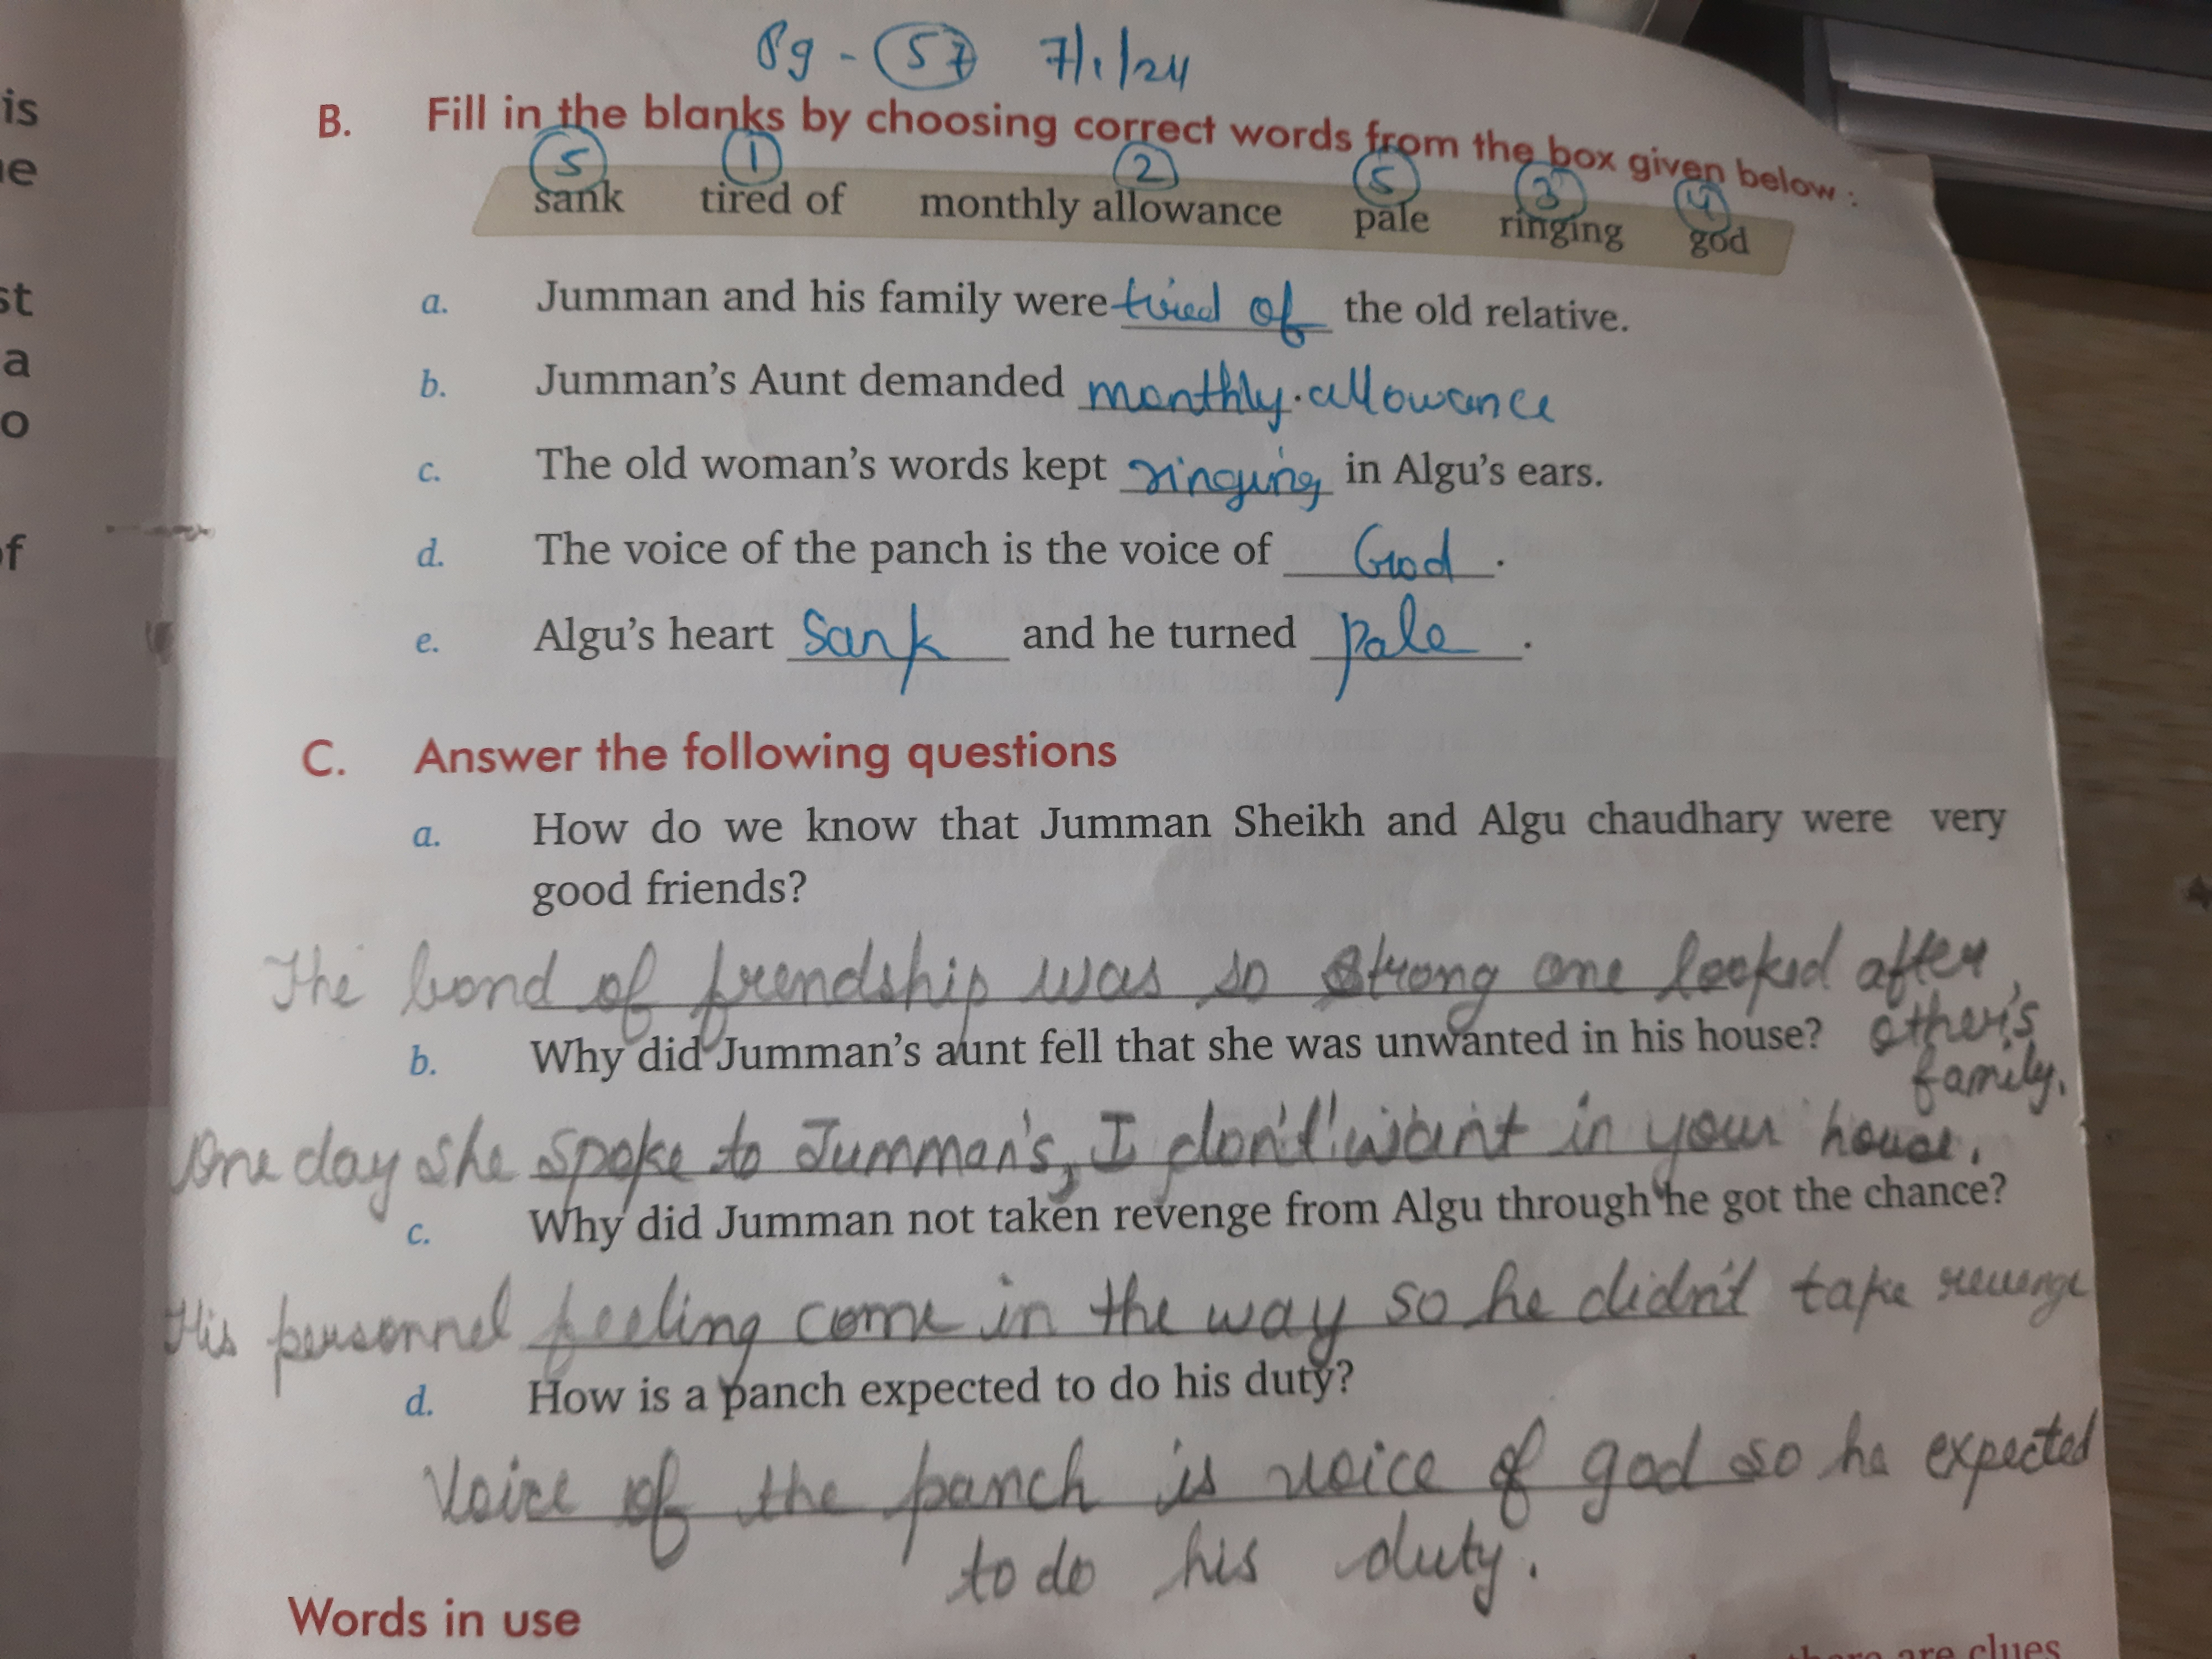 Pg - 57 7/1/24
is
B. Fill in the blanks by choosing correct words from the box given below :
5 1 2 5 3 4
sank tired of monthly allowance pale ringing god
a. Jumman and his family were tired of the old relative.
st
b. Jumman's Aunt demanded monthly allowance
a
c. The old woman's words kept ringing in Algu's ears.
o
d. The voice of the panch is the voice of God.
of
e. Algu's heart sank and he turned pale.
C. Answer the following questions
a. How do we know that Jumman Sheikh and Algu chaudhary were very
good friends?
The bond of frendship was so strong one looked after
other's
family.
b. Why did Jumman's aunt fell that she was unwanted in his house?
One day she spoke to Jumman's, I don't want in your house.
c. Why did Jumman not taken revenge from Algu through he got the chance?
His personnel feeling come in the way so he didn't take revenge
d. How is a panch expected to do his duty?
Voice of the panch is voice of god so he expected
to do his duty.
Words in use
are clues